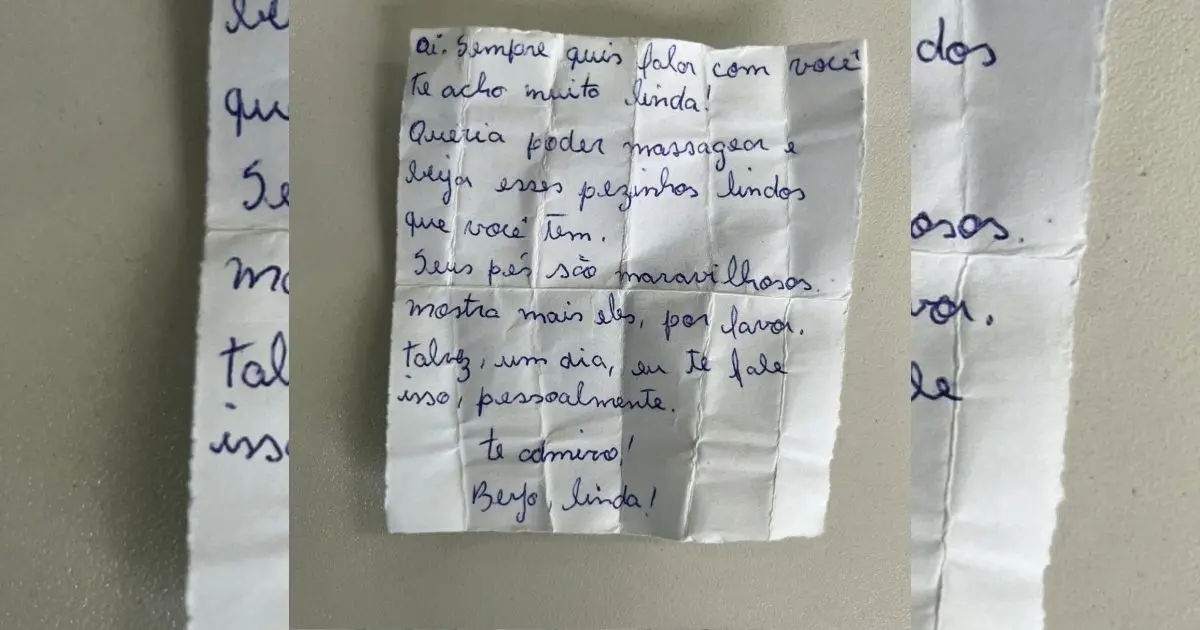 oi. Sempre quis falar com você
te acho muito linda!
Queria poder massagear e
beijar esses pezinhos lindos
que você tem.
Seus pés são maravilhosos.
mostra mais eles, por favor.
talvez, um dia, eu te fale
isso, pessoalmente.
te admiro!
Beijo, linda!